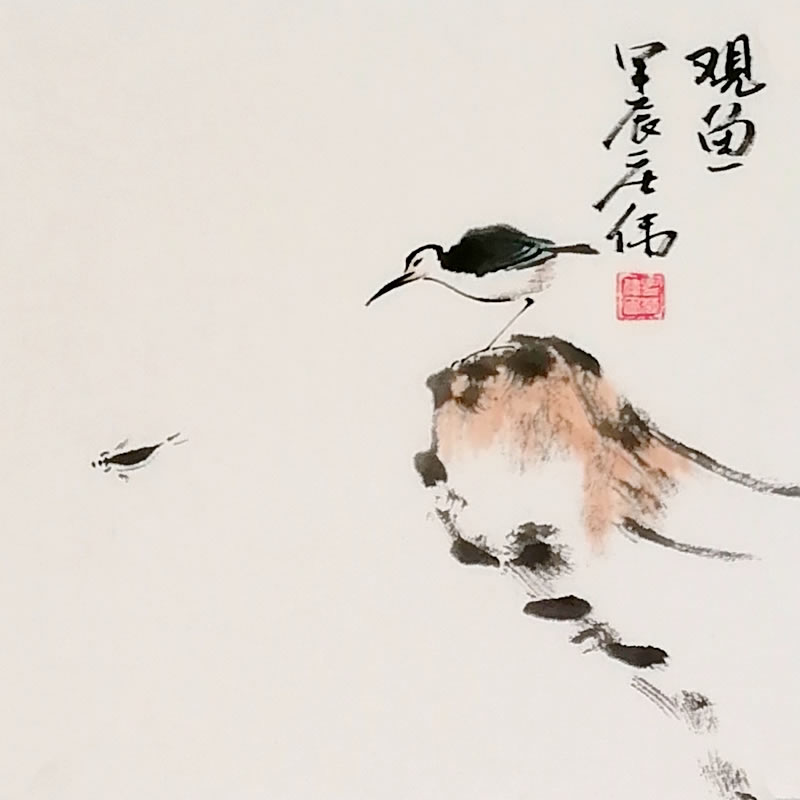 观鱼
甲辰庄伟